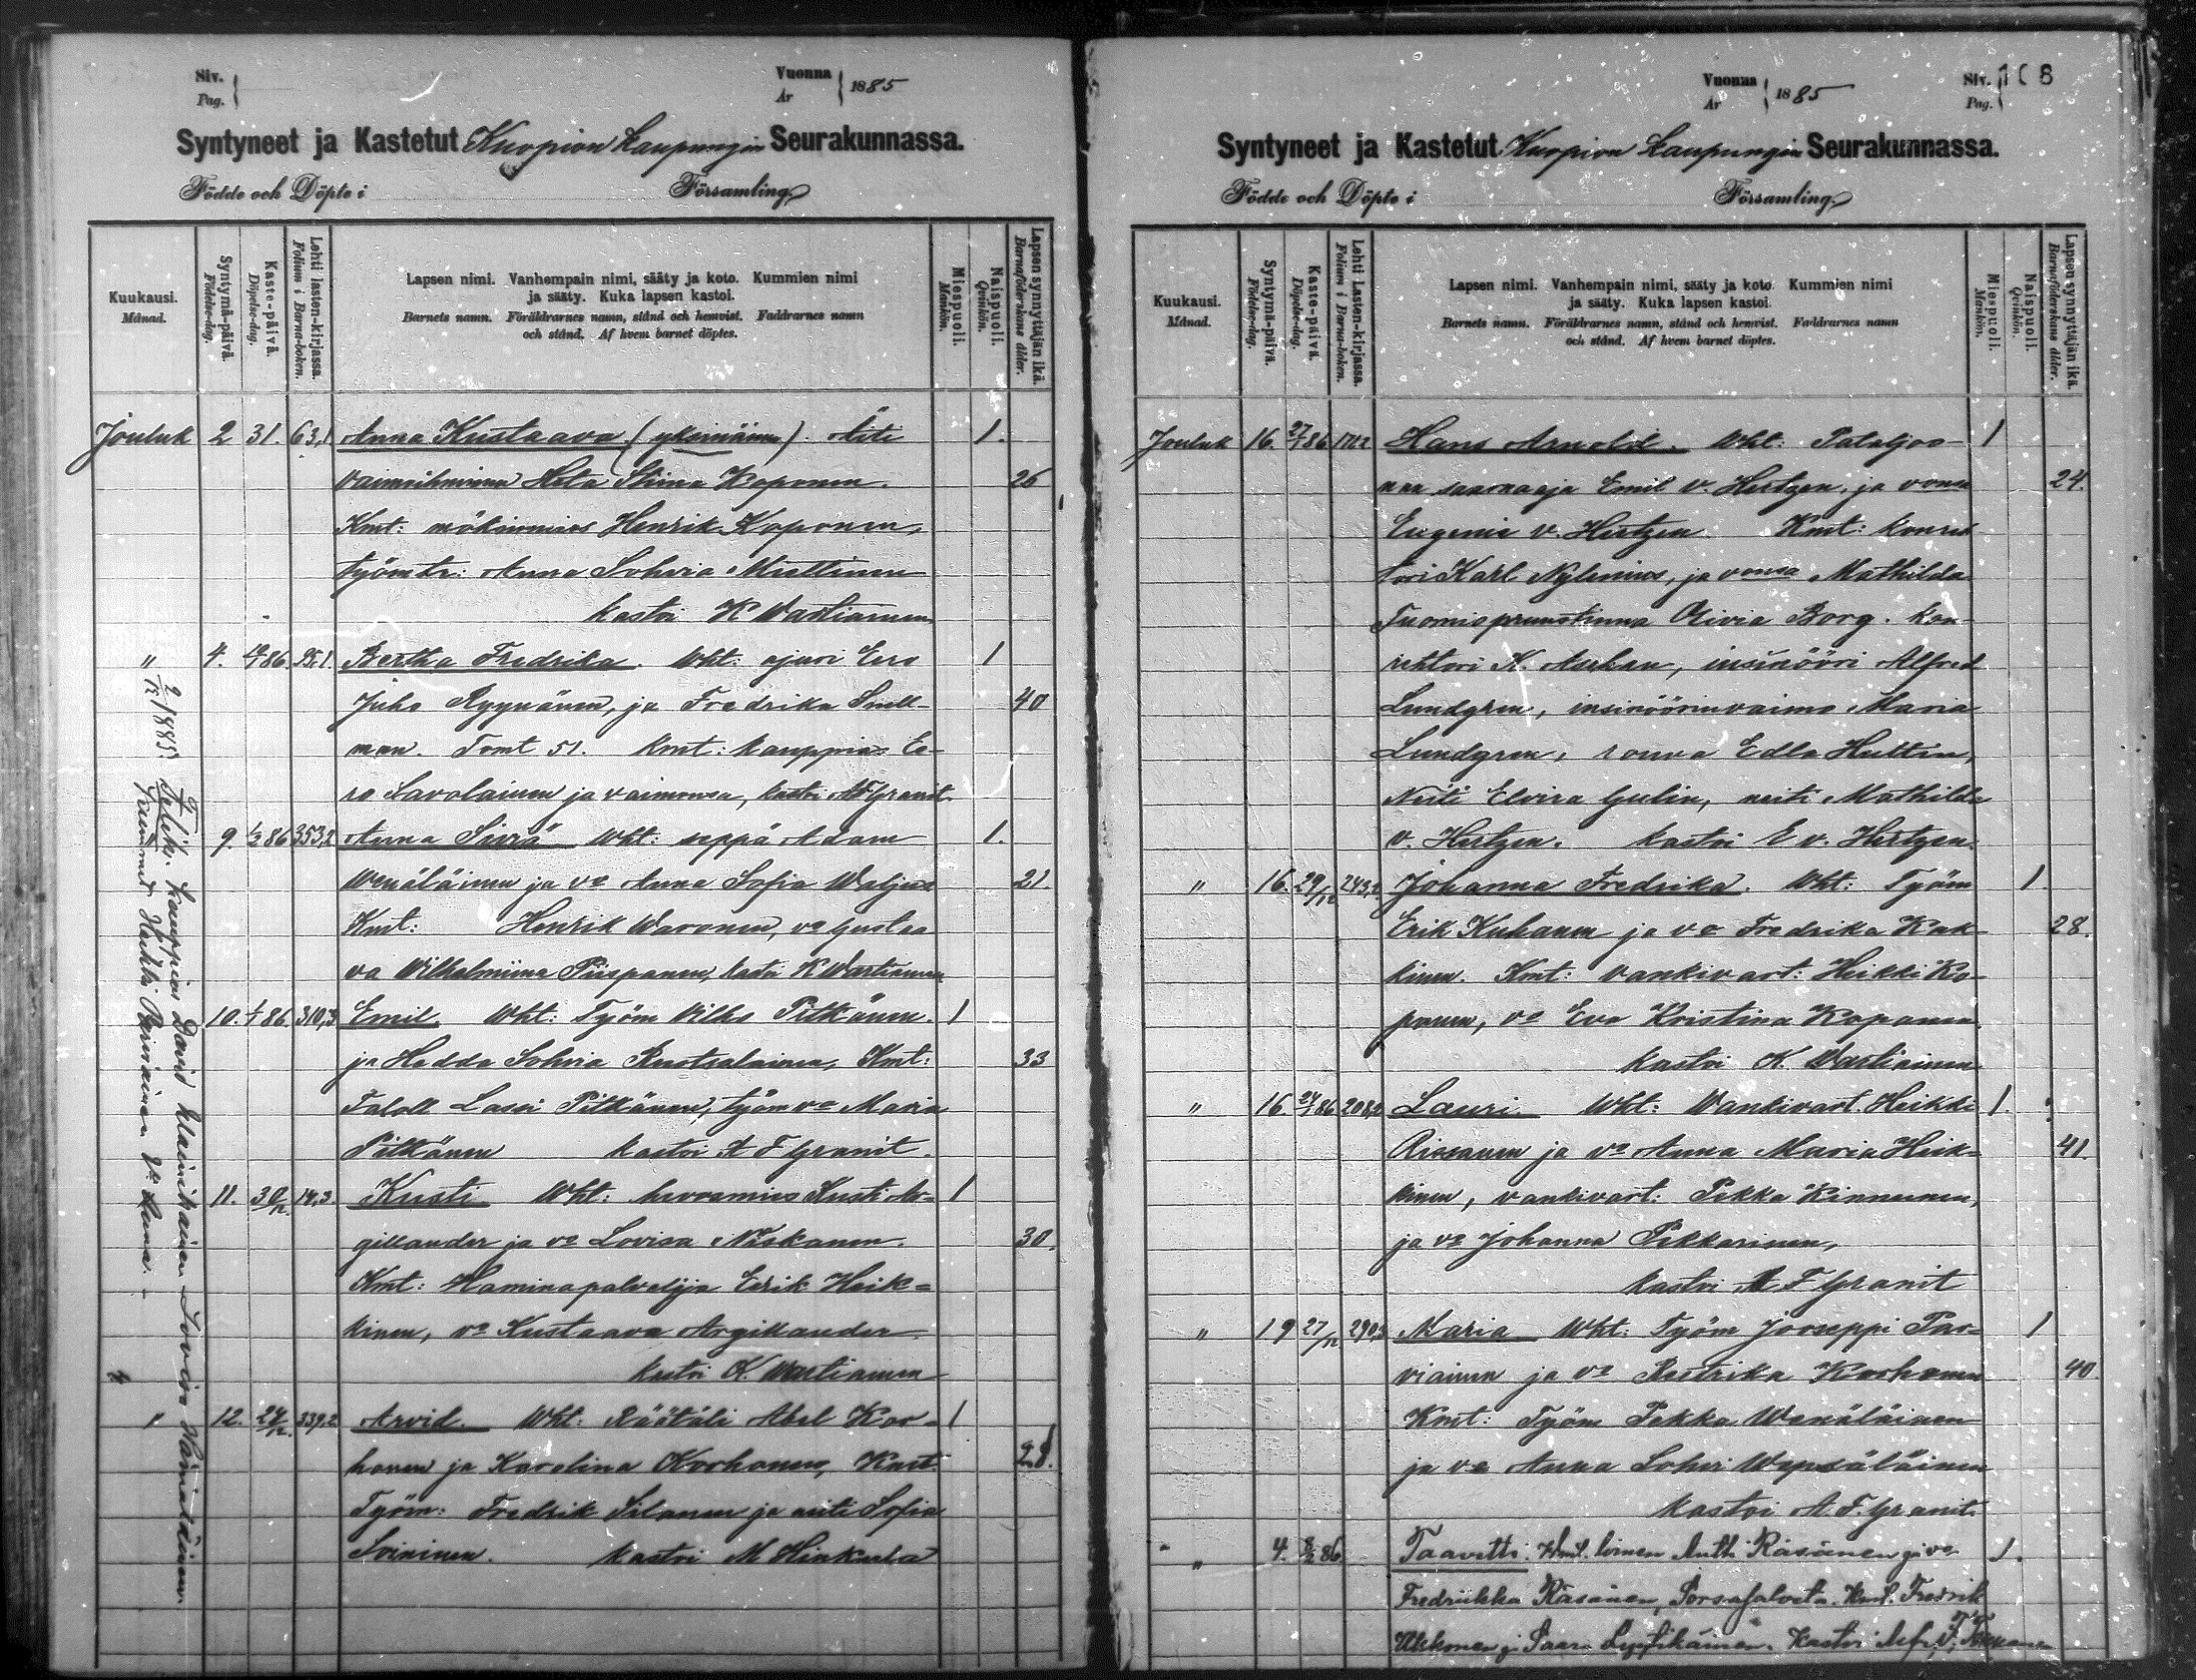 Siv.
Pag.
Vuonna
År
1885
Syntyneet ja Kastetut Kuopion Kaupungin Seurakunnassa.
Födde och Döpte i Församling
Kuukausi.
Månad.
Syntymä-päivä.
Födelse-dag.
Kaste-päivä.
Döpelse-dag.
Lehti lasten-kirjassa.
Folium i Barna-boken.
Lapsen nimi. Vanhempain nimi, sääty ja koto. Kummien nimi
ja sääty. Kuka lapsen kastoi.
Barnets namn. Föräldrarnes namn, stånd och hemvist. Faddrarnes namn
och stånd. Af hvem barnet döptes.
Miespuoli.
Mankön.
Naispuoli.
Qvinkön.
Lapsen synnyttäjän ikä.
Barnaföderskans ålder.
Jouluk 2 31. 63,1 Anna Kustaava (yksinäinen). Äiti 1.
vaimoihminen Heta Stiina Koponen. 26
Kmt: mökinmies Henrik Koponen,
työmtr: Anna Sohvia Miettinen
kastoi K Wartiainen
" 4. 86 95,1 Bertha Fredrika. Wht: ajuri Eero 1
Juho Ryynänen, ja Fredrika Snell- 40
man. Tomt 51. Kmt: kauppias Ee-
ro Savolainen ja vaimonsa, kastoi AF Granit.
9. 86 353,2 Anna Siviä Wht: seppä Adam 1.
Wenäläinen ja vo Anna Sofia Waljus 21.
Kmt: Henrik Waronen, vo Gustaa
va Wilhelmiina Piispanen, kastoi K Wartiainen
10. 1/1 86 310,3 Emil Wht: Työm Vilho Pitkänen. 1
ja Hedda Sohvia Ruotsalainen, Kmt: 33
Taloll Lassi Pitkänen, työm vo Maria
Pitkänen kastoi A F Granit.
11. 30/12. 14,3 Kusti Wht: hevosmies Kusti Ar- 1
gillander ja vo Lovisa Niskanen. 30.
Kmt: Haminapalvelija Eerik Heik=
kinen, vo Kustaava Argillander.
kastoi K. Wartiainen
" 12. 24/12. 339,2 Arvid. Wht: Räätäli Abel Kor- 1
honen ja Karolina Korhonen, Kmt: 28.
Työm: Fredrik Silanen ja neiti Sofia
Soininen. kastoi M Hinkula
2/12 1885 Felik. kauppias David Lovisa Hämäläinen
Heikki vo
Vuonna
År
1885
Siv.
Pag.
108
Syntyneet ja Kastetut Kuopion Kaupungin Seurakunnassa.
Födde och Döpte i Församling
Kuukausi.
Månad.
Syntymä-päivä.
Födelse-dag.
Kaste-päivä.
Döpelse-dag.
Lehti Lasten-kirjassa.
Folium i Barna-boken.
Lapsen nimi. Vanhempain nimi, sääty ja koto. Kummien nimi
ja sääty. Kuka lapsen kastoi.
Barnets namn. Föräldrarnes namn, stånd och hemvist. Faddrarnes namn
och stånd. Af hvem barnet döptes.
Miespuoli.
Mankön.
Naispuoli.
Qvinkön.
Lapsen synnyttäjän ikä.
Barnaföderskans ålder.
Jouluk 16. 27/1 86 170,2 Hans Arnold. Wht: Pataljoo- 1
nan saarnaaja Emil v. Hertzen, ja vonsa 24.
Eugenie v. Hertzen. Kmt: konreh
tori Karl Nylenius, ja vonsa Mathilda
Tuomioprunstinna Olivia Borg. kon-
rehtori K. Asehan, insinööri Alfred
Lundgren, insinöörinvaimo Maria
Lundgren, rouva Edla Hultin,
Neiti Elvira Gulin, neiti Mathilda
v. Hertzen. kastoi E v. Hertzen.
" 16. 29/12 243,2 Johanna Fredrika. Wht: Työm 1
Erik Kuhanen ja vo Fredrika Kuk- 28.
kinen. Kmt: vankivart: Heikki Ko-
ponen, vo Eva Kristina Koponen.
kastoi K. Wartiainen
" 16 86 208,2 Lauri Wht: Wankivart. Heikki 1.
Rissanen ja vo Anna Maria Heik- 41.
kinen, vankivart: Pekka Kinnunen,
ja vo Johanna Pekkarinen,
kastoi A F Granit
" 19 27/12 290,3 Maria Wht: Työm Jooseppi Par- 1
viainen ja vo Reetrika Korhonen 40.
Kmt: Työm Pekka Wenäläinen
ja vo Anna Sohvi Wepsäläinen
kastoi A. F. Granit.
" 4. 86 Taavetti. Wmt. loinen Antti Räsänen ja vo 1.
Fredriikka Räsänen, Kmt. Fredrik
Ukkonen ja Saara kastoi